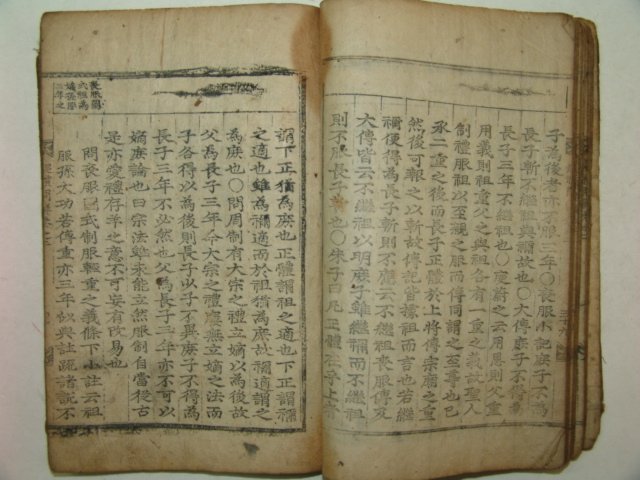 子爲後者亦不服三年〇喪服小記庶子不爲
長子斬不繼祖與禰故也〇大傳庶子不得爲
長子三年不繼祖也〇庾蔚之云用恩則父重
用義則祖重父之與祖各有一重之義故聖人
制禮服祖以至親之服而傳同謂之至尊也已
承二重之後而長子正體於上將傳宗廟之重
然後可報之以斬故傳記皆據祖而言也若繼
禰便得爲長子斬則不應云不繼祖喪服傳及
大傳皆云不繼祖以明庶子雖繼禰而不繼祖
則不服長子斬也〇朱子曰凡正體在乎上者
謂下正猶爲庶也正體謂祖之適也下正謂禰
之適也雖爲禰適而於祖猶爲庶故禰適謂之
爲庶也〇問周制有大宗之禮立嫡以爲後故
父爲長子三年今大宗之禮廢無立嫡之法而
子各得以爲後則長子少子不異庶子不得爲
長子三年不必然也父爲長子三年亦不可以
嫡庶論也曰宗法雖未能立然服制自當從古
是亦愛禮存羊之意不可妄有改易也
問喪服圖式制服輕重之義條下小註云祖
服孫大功若傳重亦三年似與註疏諸說不
喪服圖
式祖爲
嫡孫
三年之